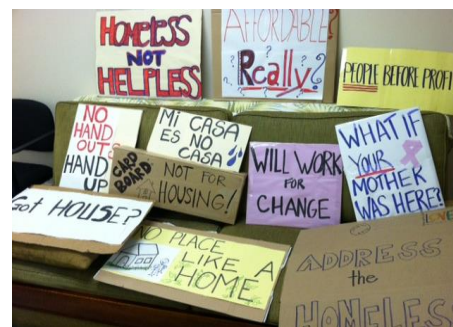 HOMELESS
NOT
HELPLESS
AFFORDABLE?
Really?
PEOPLE BEFORE PROFI
NO
HAND
OUTS
HAND
UP
Mi CASA
ES NO
CASA
CARD
BOARD:
NOT FOR
HOUSING!
WILL WORK
FOR
CHANGE
WHAT IF
YOUR
MOTHER
WAS HERE?
Got HOUSE?
NO PLACE
LIKE A
HOME
LOVE
ADDRESS
the
HOMELESS